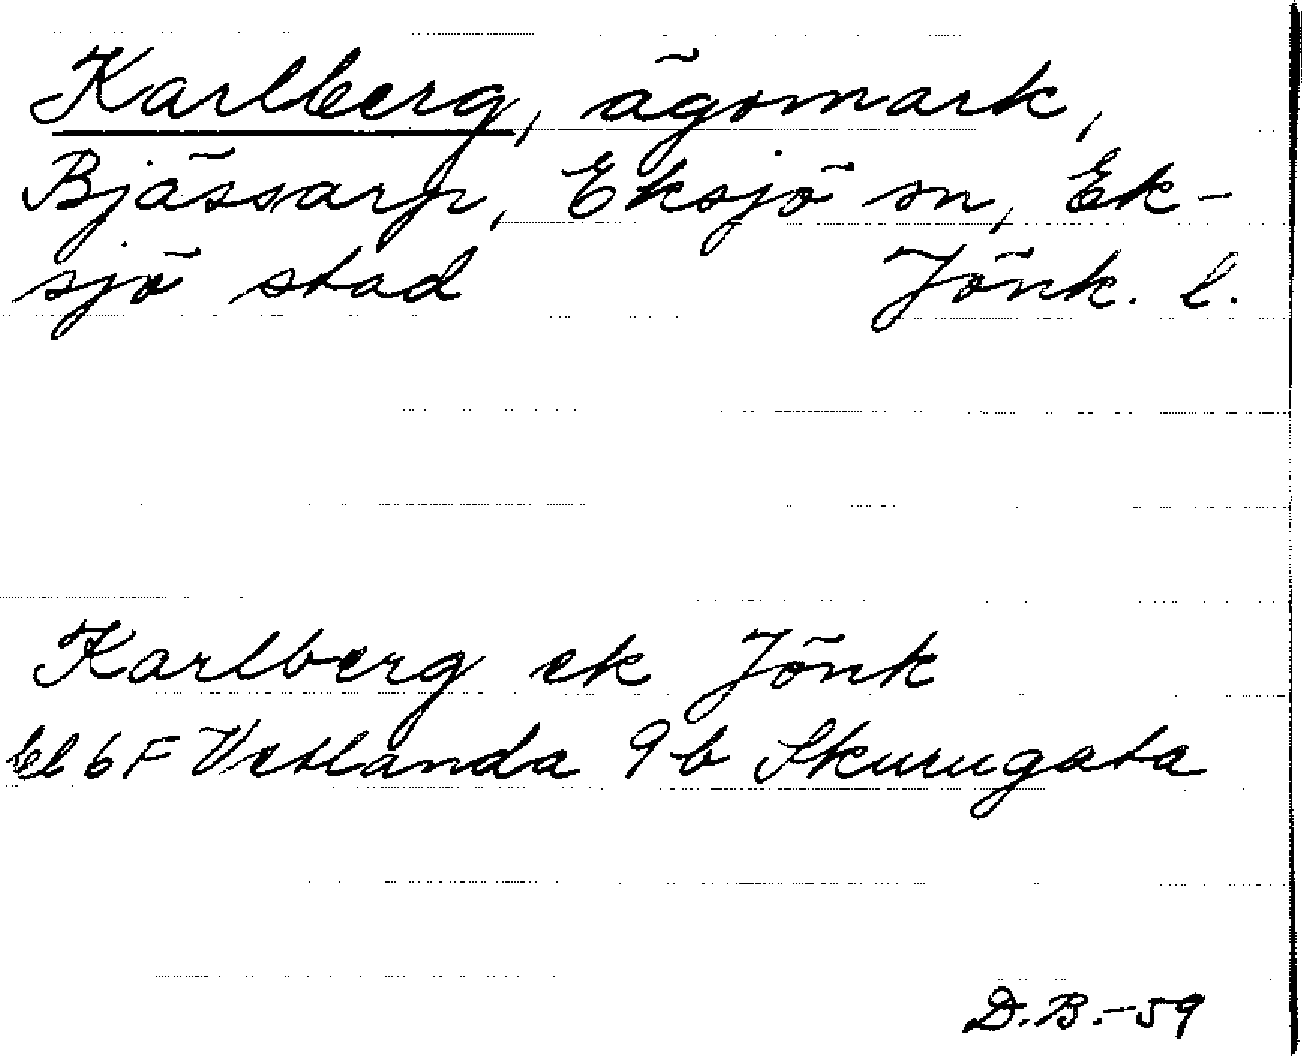 Karlberg, ägomark,
Bjässarp, Eksjö sn, Ek-
sjö stad Jönk. l.
Karlberg ek Jönk
bl 6 F Vetlanda 9 b Skurugata
D.B.-59